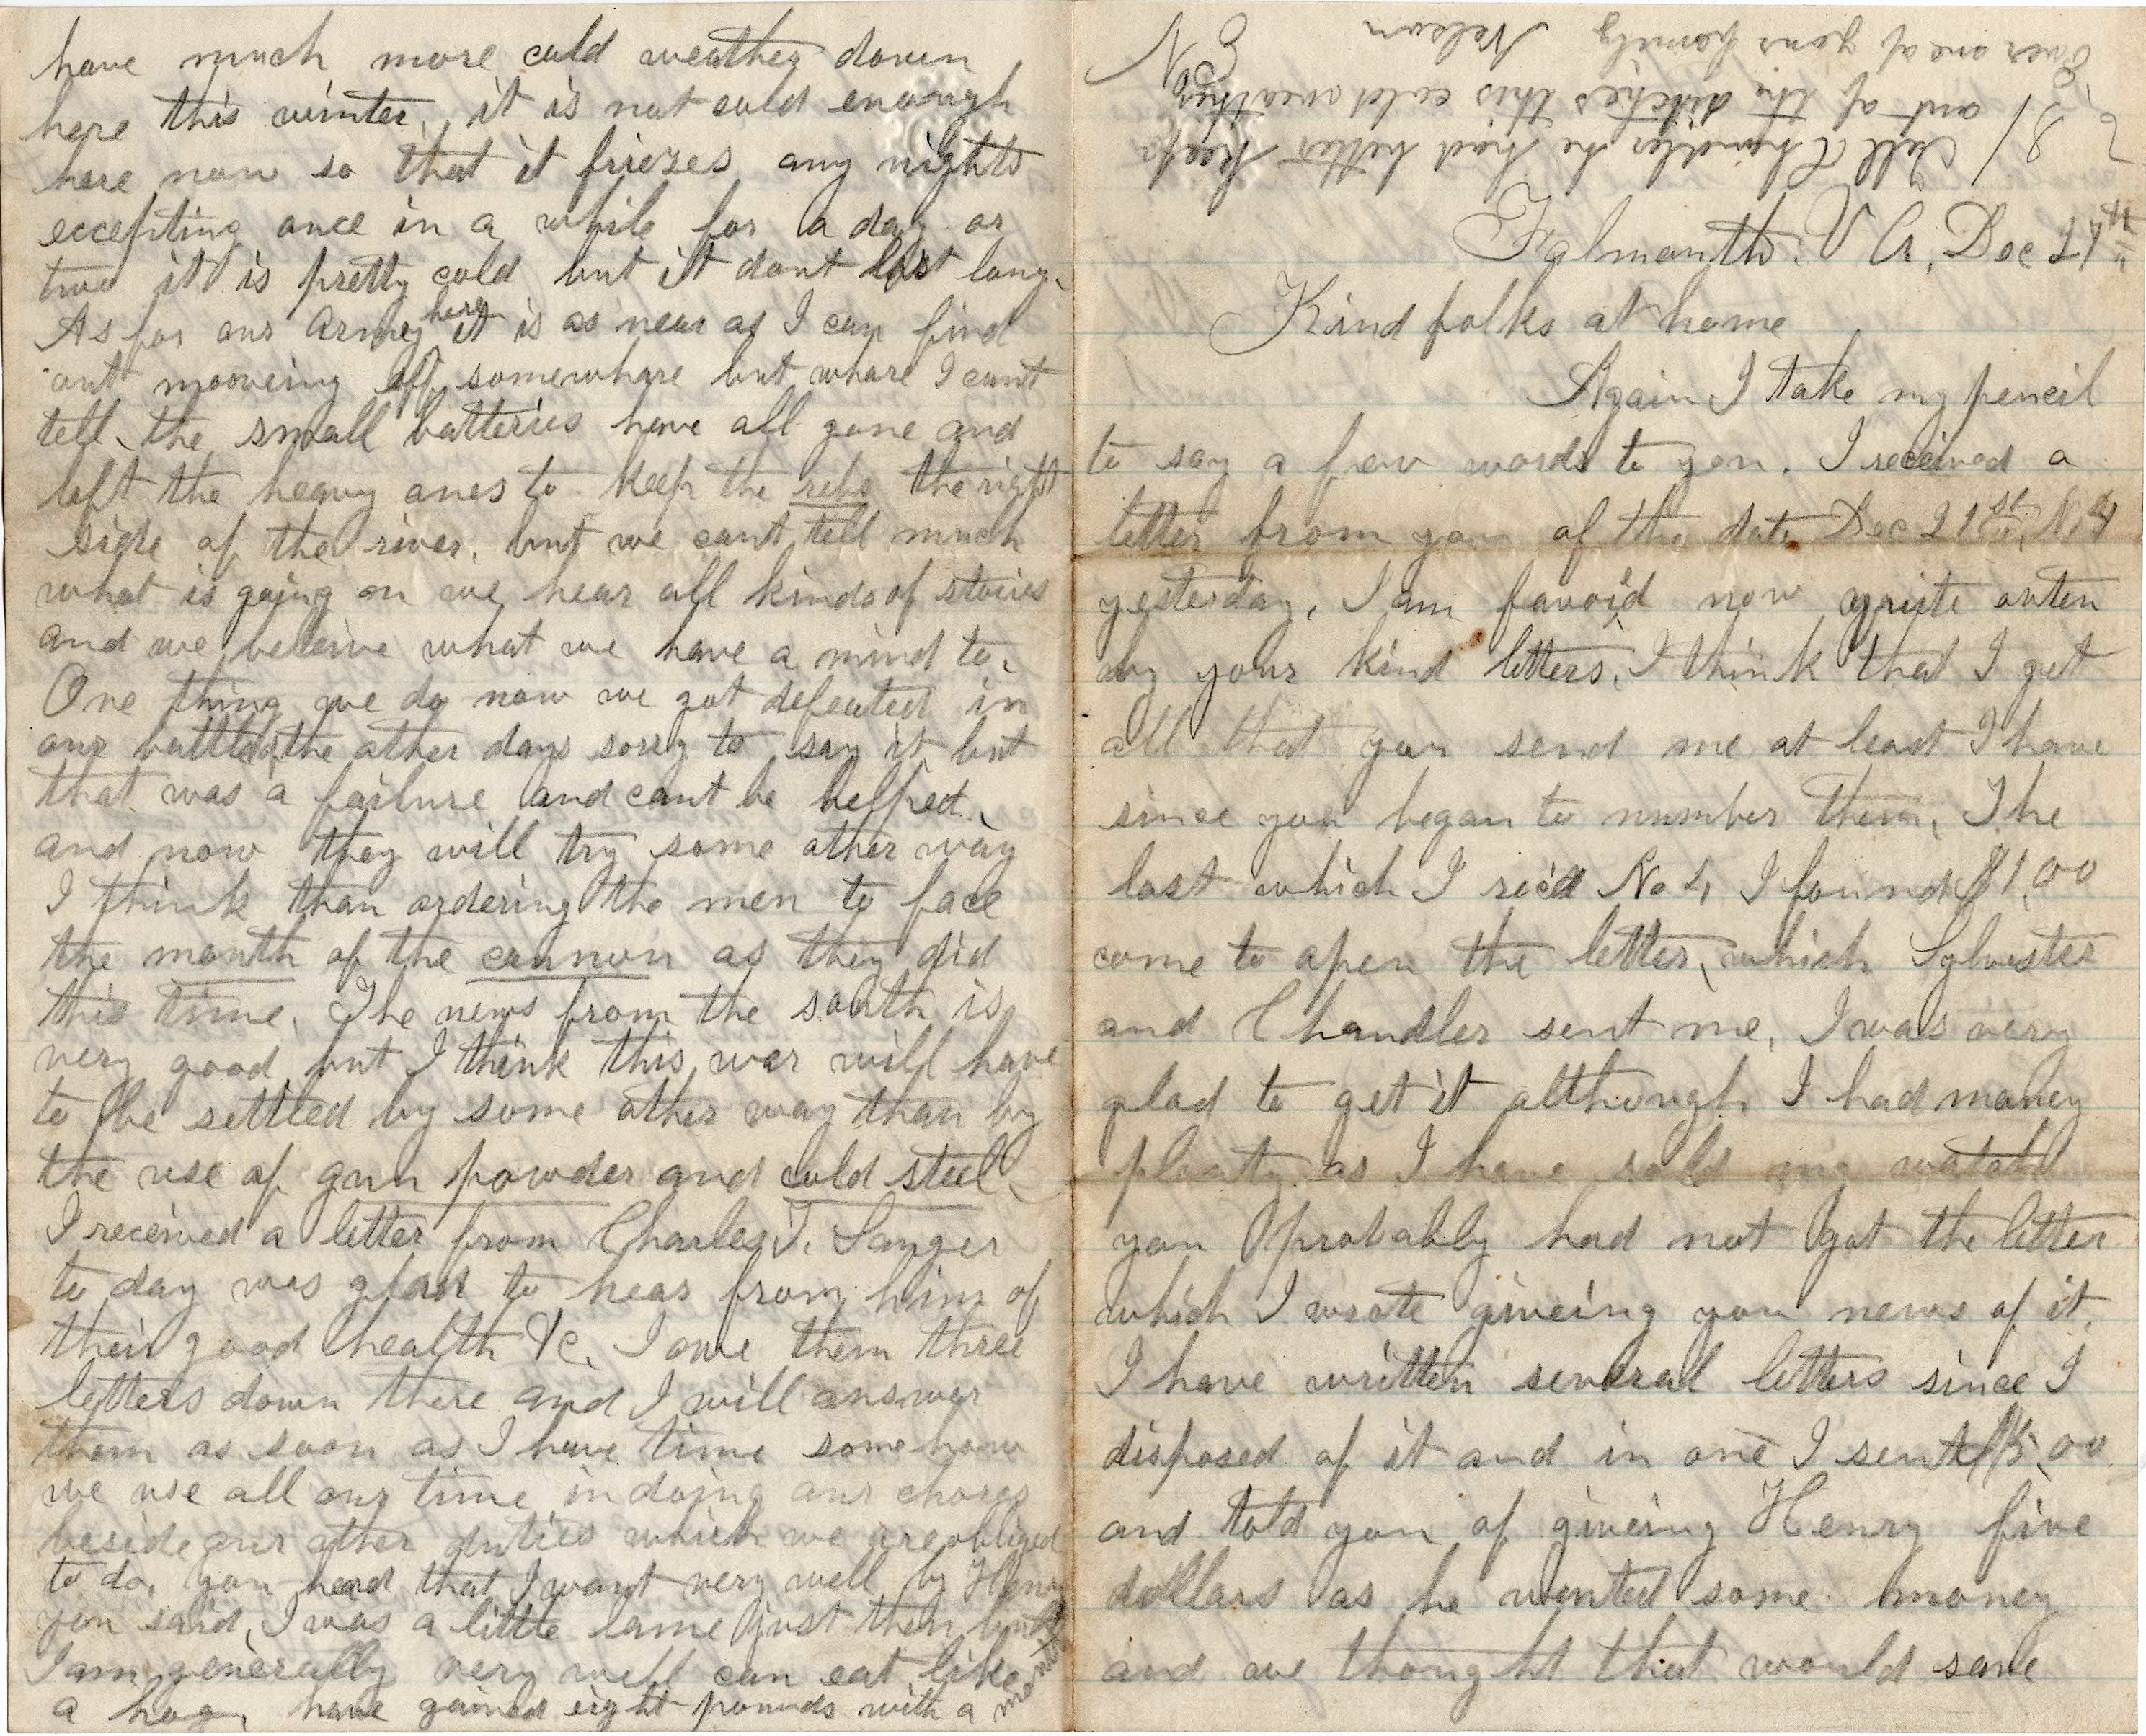 Falmouth. V A. Dec 27th
Kind folks at home
Again I take my pencil
to say a few words to you. I received a
letter from you of the date Dec 21st, No 4
yesterday, I am favoid now quite orten
by your kind letters, I think that I get
all that you send me at least I have
since you began to number them, The
last which I rec'd No 4, I found $1,00
come to open the letter, which Sylvester
and Chandler sent me, I was very
glad to get it although I had money
plenty as I have sold my watch
you probably had not got the letter
which I wrote giveing you news of it,
I have written several letters since I
disposed of it and in one I sent $5,00
and told you of giveing Henry five
dollars as he wanted some money
and we thought that would save
have much more cold weather down
here this winter, it is not cold enough
here now so that it friezes any nights
eccepting once in a while for a day or
two it is pretty cold but it dont last long.
As for our Army here it is as near as I can find
out mooveing off somewhare but whare I cant
tell, the small batteries have all gone and
left the heavy ones to keep the rebs the right
side of the river, but we cant tell much
what is going on we hear all kinds of stories
and we beleive what we have a mind to,
One thing we do now we got defeated in
our battles the other days sorry to say it but
that was a failure and cant be helped,
and now they will try some other way
I think than ordering the men to face
the mouth of the cannon as they did
this time, The news from the south is
very good but I think this war will have
to be settled by some other way than by
the use of gun powder and cold steel,
I received a letter from Charles T. Sanger
to day was glad to hear from him of
their good health &c, I owe them three
letters down there and I will answer
them as soon as I have time some how
we use all our time in doing our chores
beside our other duties which we are obliged
to do, you heard that I want very well by Henry
you said, I was a little lame just then but
I am generally very well can eat like
a hog, have gained eight pounds with a month
Tell Chandler he had better keep
out of the ditches this cold weather
Ever one of your family Nelson